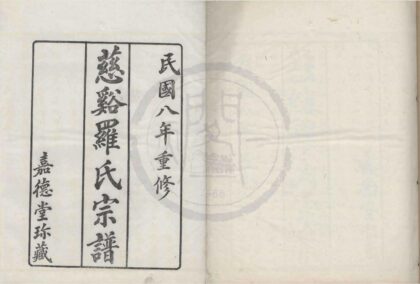 民國八年重修
慈谿羅氏宗譜
嘉德堂珍藏